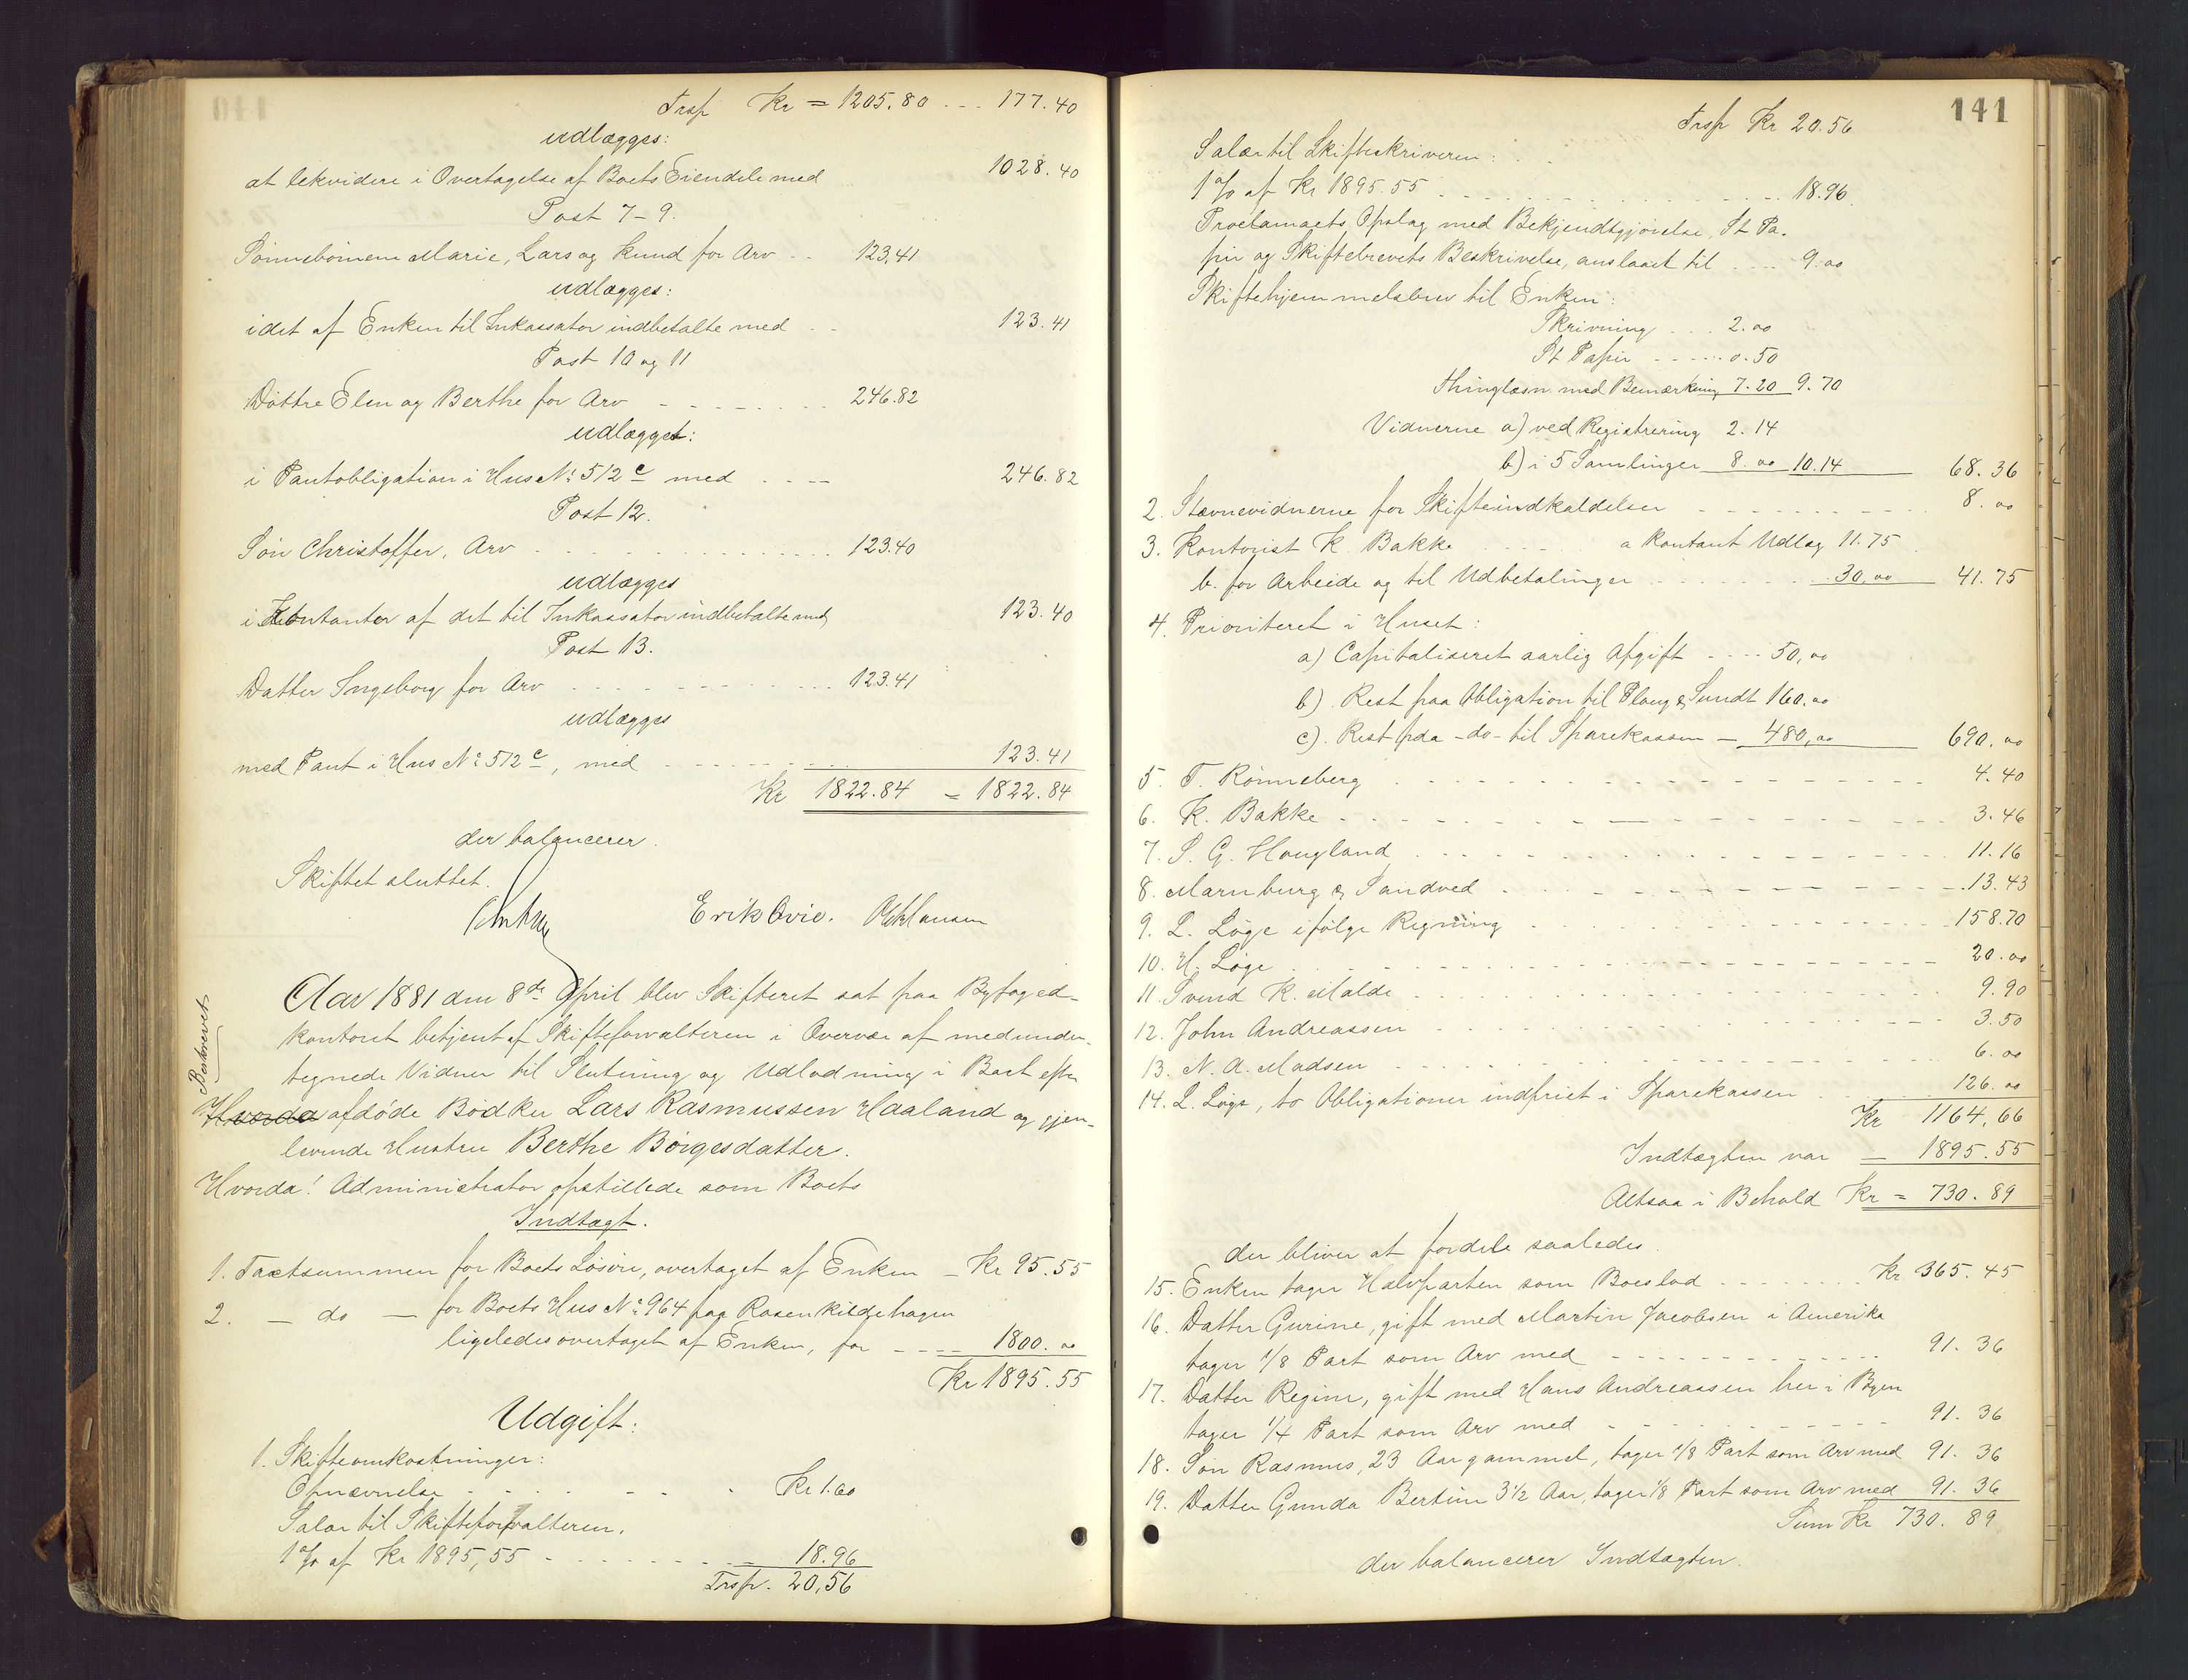 Trsp Kr = 1205.80 ... 177.40
udlægges:
at lekvidere i Overtagelse af Boets Eiendele med 1028.40
Post 7-9.
Sønnebørnene Marie, Lars og Knud for Arv .. 123,41
udlægges:
i det af Enken til Inkassator indbetalte med .. 123.41
Post 10 og 11
Døttre Elen og Berthe for Arv 246.82
udlægget:
i Pantobligation i Hus No 512c med 246.82
Post 12.
Søn Christoffer, Arv 123.40
udlægges
i Kontanter af det til Inkassator indbetalte med 123.40
Post 13.
Datter Ingeborg for Arv 123.41
udlægges
med Pant i Hus No 512c, med 123.41
Kr 1822.84 = 1822.84
der balancerer.
Skiftet sluttet.
Erik Ovie.
Aar 1881 den 8de April blev Skifteret sat paa Byfoged-
kontoret betjent af Skifteforvalteren i Overvær af medunder-
tegnede Vidner til Slutning og Udlodning i Boet efter
Beskrevet
Hvorda afdøde Bødker Lars Rasmussen Haaland og gjen-
levende Hustru Berthe Børgesdatter.
Hvorda! Administrator opstillede som Boets
Indtægt.
1. Taxtsummen for Boets Løsøre, overtaget af Enken - Kr 95.55
2. — do — for Boets Hus No 964 paa Rosenkildehagen
ligeledes overtaget af Enken, for ---- 1800. 00
Kr 1895.55
Udgift:
1. Skifteomkostninger:
Opnævnelse Kr 1.60
Salær til Skifteforvalteren.
1 % af Kr 1895,55 18.96
Trsp. 20,56
141
Trsp Kr 20.56
Salær til Skifteskriveren:
1 % af Kr 1895.55 18.96
Proclamaets Opslag med Bekjendtgjørelse, St Pa-
pir og Skiftebrevets Beskrivelse, anslaaet til .... 9.00
Skiftehjemmelsbrev til Enken:
Skrivning ... 2.00
St Papir ----- 0.50
Thinglæsn. med Bemærkning 7.20 9.70
Vidnerne a) ved Registrering 2.14
b) i 5 Samlinger 8. 00 10.14 68.36
2. Stævnevidnerne for Skifteindkaldelser 8. 00
3. Kontorist K. Bakke a Kontant Udlæg 11.75
b. for Arbeide og til Udbetalinger 30,00 41.75
4. Prioriteret i Huset:
a) Capitaliseret aarlig Afgift ---- 50,00
b) Rest paa Obligation til Ploug & Sundt 160.00
c). Rest paa -do- til Sparekassen — 480,00 690. 00
5. T. Rønneberg 4.40
6. K. Bakke 3.46
7. S. G. Hougland 11.16
8. Marnburg & Sandved 13.43
9. L. Løge ifølge Regning 158.70
10. H. Løge 20.00
11. Svend K. Malde 9.90
12. John Andreassen 3.50
13. N. A. Madsen 6. 00
14. L. Løge, to Obligationer indfriet i Sparekassen 126. 00
Kr 1164,66
Indtægten var — 1895.55
Altsaa i Behold Kr = 730.89
der bliver at fordele saaledes.
15. Enken tager Halvparten som Boeslod Kr 365.45
16. Datter Gurine, gift med Martin Jacobsen i Amerika
tager 1/8 Part som Arv med 91. 36
17. Datter Regine, gift med Hans Andreassen her i Byen
tager 1/4 Part som Arv med 91. 36
18. Søn Rasmus, 23 Aar gammel, tager 1/8 Part som Arv med 91. 36
19. Datter Gunda Bertine 3 1/2 Aar, tager 1/8 Part som Arv med 91. 36
Sum Kr 730. 89
der balancerer Indtægten.